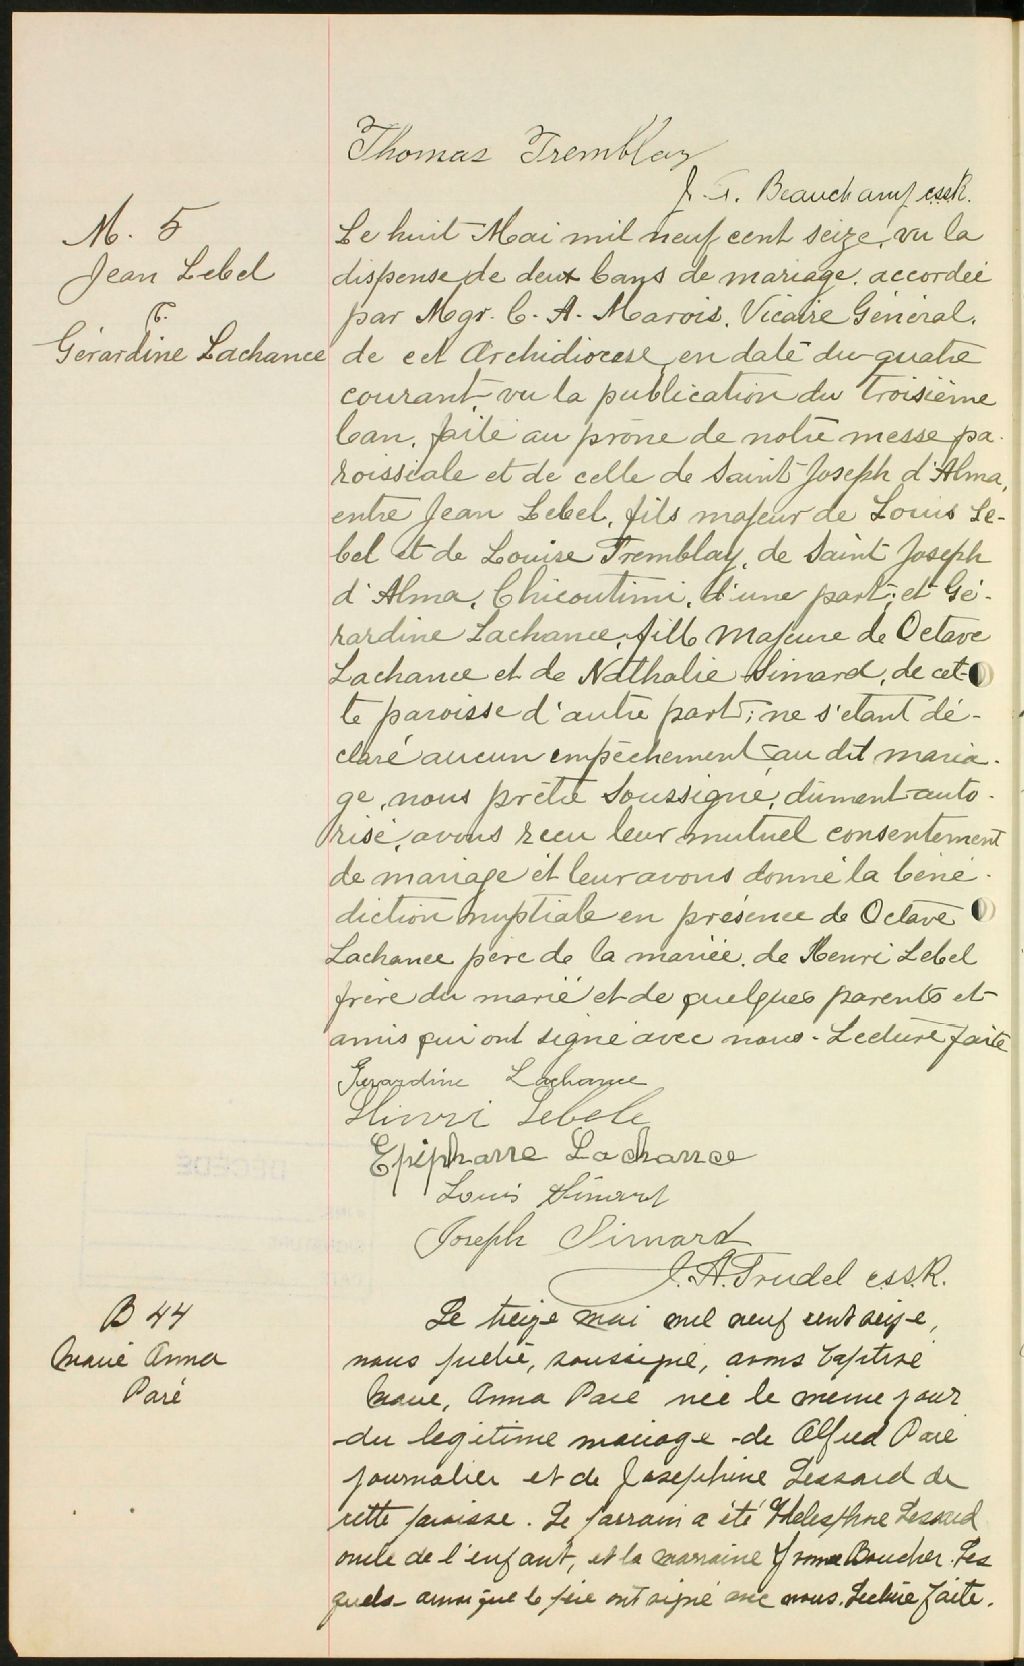 Thomas Tremblay
J. F. Beauchamp c.ss.R.
M. 5
Jean Lebel
&
Gérardine Lachance
Le huit Mai mil neuf cent seize, vu la
dispense de deux bans de mariage, accordée
par Mgr. C. A. Marois, Vicaire Général,
de cet Archidiocèse, en date du quatre
courant, vu la publication du troisième
ban, faite au prône de notre messe pa-
roissiale et de celle de Saint Joseph d'Alma,
entre Jean Lebel, fils majeur de Louis Le-
bel et de Louise Tremblay, de Saint Joseph
d'Alma, Chicoutimi, d'une part; et Gé-
rardine Lachance, fille majeure de Octave
Lachance et de Nathalie Simard, de cet-
te paroisse d'autre part; ne s'étant dé-
claré aucun empêchement au dit maria-
ge, nous prêtre soussigné, dûment auto-
risé, avons reçu leur mutuel consentement
de mariage et leur avons donné la béné-
diction nuptiale en présence de Octave
Lachance père de la mariée, de Henri Lebel
frère du marié et de quelques parents et
amis qui ont signé avec nous. Lecture faite
Gérardine Lachance
Henri Lebele
Epiphanne Lachance
Louis Simard
Joseph Simard
J. A. Trudel c.s.s.R.
DÉCÉDÉ
B 44
Marie Anna
Paré
Le treize mai mil neuf cent seize,
nous prêtre, soussigné, avons baptisé
Marie, Anna Paré née le meme jour
du legitime mariage de Alfred Paré
journalier et de Josephine Lessard de
cette paroisse. Le parrain a été Thelesphore Lessard
oncle de l'enfant, et la marraine Boucher. Les
quels ainsi que le père ont signé avec nous. Lecture faite.